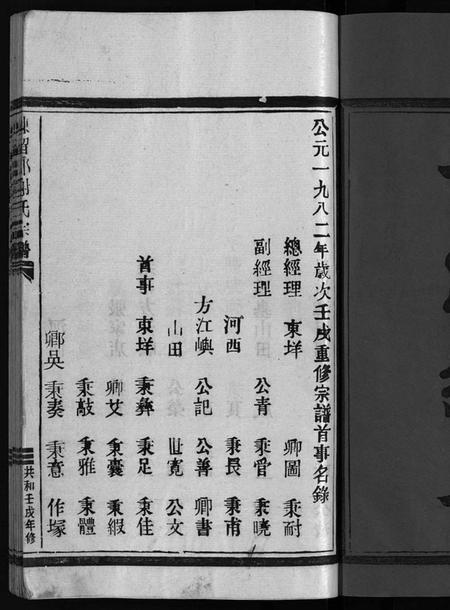 公元一九八二年歲次壬戌重修宗譜首事名錄
總經理 東垟 卿圖 秉耐
副經理 公青 秉官 秉曉
河西 秉畏 秉甫
方江嶼 公記 公善 卿書
山田 世寬 公文
首事 東垟 秉彝 秉足 秉佳
卿艾 秉囊 秉緞
秉敲 秉雅 秉體
卿吳 秉奏 秉意 作塚
陳留郡謝氏宗譜
共和壬戌年修